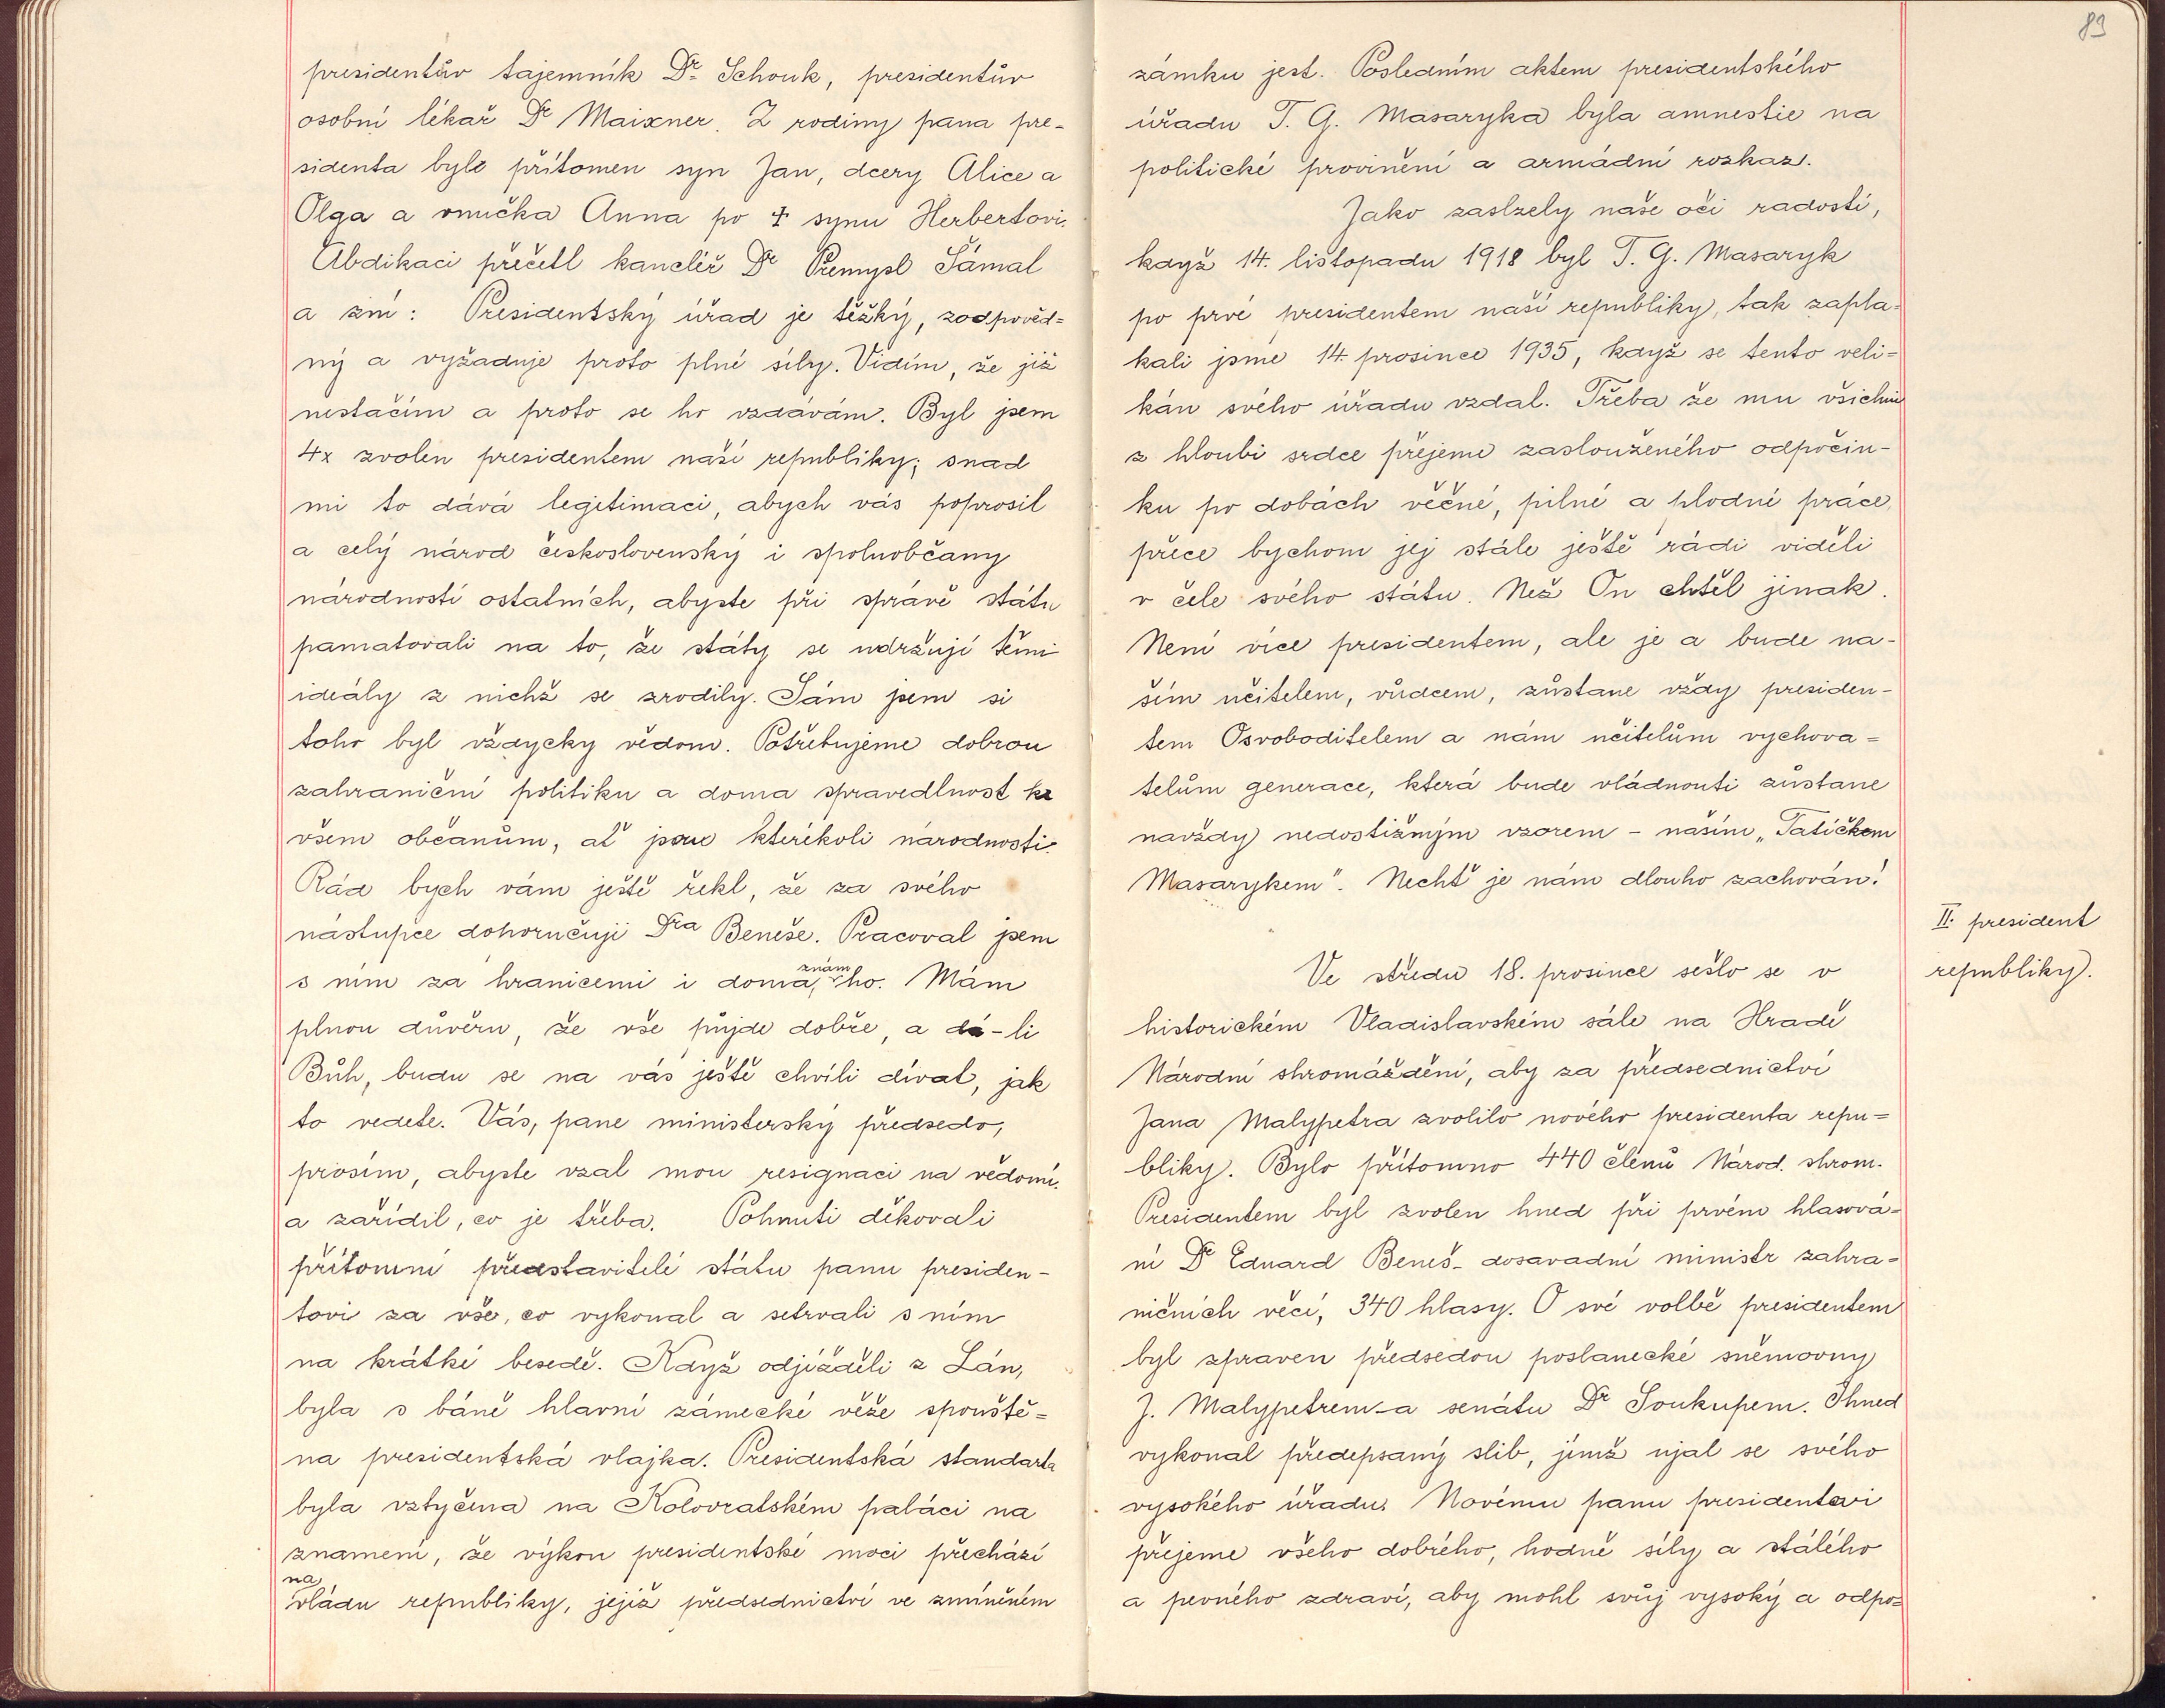 presidentův tajemník Dr. Schonk, presidentův
osobní lékař Dr Maixner. Z rodiny pana pre-
sidenta byli přítomen syn Jan, dcery Alice a
Olga a vnučka Anna po † synu Herbertovi.
Abdikaci přečetl kancléř Dr Přemysl Šámal
a zní: Presidentský úřad je těžký, zodpověd=
ný a vyžaduje proto plné síly. Vidím, že již
nestačím a proto se ho vzdávám. Byl jsem
4x zvolen presidentem naší republiky; snad
mi to dává legitimaci, abych vás poprosil
a celý národ československý i spoluobčany
národností ostatních, abyste při správě státu
pamatovali na to, že státy se udržují těmi
ideály z nichž se zrodily. Sám jsem si
toho byl vždycky vědom. Potřebujeme dobrou
zahraniční politiku a doma spravedlnost ke
všem občanům, ať jsou kterékoli národnosti.
Rád bych vám ještě řekl, že za svého
nástupce dohoručuji Dra Beneše. Pracoval jsem
s ním za hranicemi i doma, znám ho. Mám
plnou důvěru, že vše půjde dobře, a dá-li
Bůh, budu se na vás ještě chvíli díval, jak
to vedete. Vás, pane ministerský předsedo,
prosím, abyste vzal mou resignaci na vědomí.
a zařídil, co je třeba. Pohnuti děkovali
přítomní představitelé státu panu presiden-
tovi za vše, co vykonal a setrvali s ním
na krátké besedě. Když odjížděli z Lán,
byla s báně hlavní zámecké věže spouště=
na presidentská vlajka. Presidentská standarta
byla vztyčena na Kolovratském paláci na
znamení, že výkon presidentské moci přechází
na vládu republiky, jejíž předsednictví ve zmíněném
89
zámku jest. Posledním aktem presidentského
úřadu T. G. Masaryka byla amnestie na
politické provinění a armádní rozkaz.
Jako zaslzely naše oči radostí,
když 14. listopadu 1918 byl T. G. Masaryk
po prvé presidentem naší republiky, tak zapla=
kali jsme 14. prosince 1935, když se tento veli=
kán svého úřadu vzdal. Třeba že mu všichni
z hloubi srdce přejeme zaslouženého odpočin-
ku po dobách věčné, pilné a plodné práce,
přece bychom jej stále ještě rádi viděli
v čele svého státu. Než On chtěl jinak.
Není více presidentem, ale je a bude na-
ším učitelem, vůdcem, zůstane vždy presiden-
tem Osvoboditelem a nám učitelům vychova=
telům generace, která bude vládnouti zůstane
navždy nedostižným vzorem - naším „Tatíčkem
Masarykem". Nechť je nám dlouho zachován!
II. president
republiky.
Ve středu 18. prosince sešlo se v
historickém Vladislavském sále na Hradě
Národní shromáždění, aby za předsednictví
Jana Malypetra zvolilo nového presidenta repu=
bliky. Bylo přítomno 440 členů Národ. shrom.
Presidentem byl zvolen hned při prvém hlasová=
ní Dr Eduard Beneš - dosavadní ministr zahra=
ničních věcí, 340 hlasy. O své volbě presidentem
byl zpraven předsedou poslanecké sněmovny
J. Malypetrem - a senátu Dr Soukupem. Ihned
vykonal předepsaný slib, jímž ujal se svého
vysokého úřadu. Novému panu presidentovi
přejeme všeho dobrého, hodně síly a stálého
a pevného zdraví, aby mohl svůj vysoký a odpo=